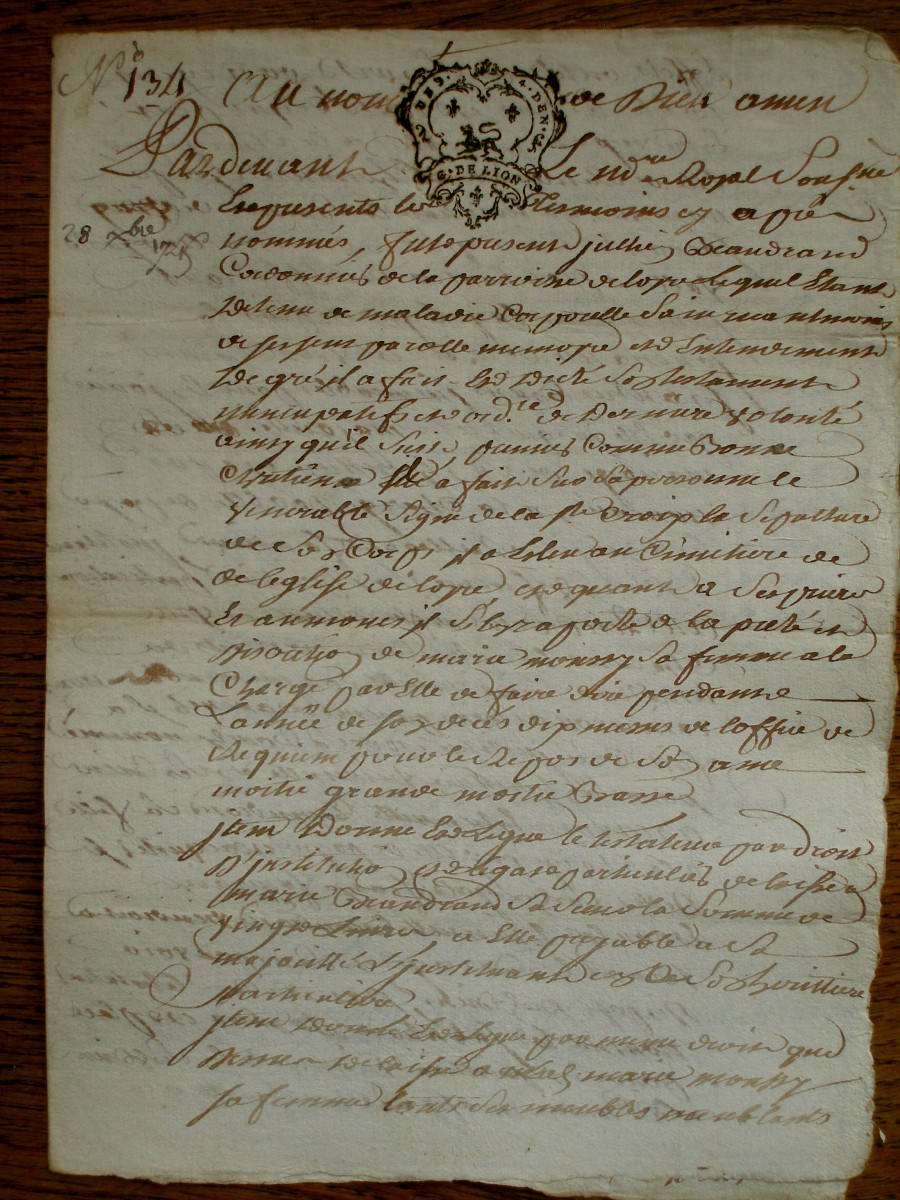 N° 134
Au nom de Dieu amen
DE 2 DEN
G. DE LION
Pardevant Le no.re Royal Soussigné
En presents les Temoins cy apres
28 xbre
nommés, fut present Chandrand
Cordonnier de la parroisse de lope Lequel Etant
detenu de maladie Corporelle Sain neantmoins
de ses sens parolle memoire et Entendement
de gré il a fait Et dicté Son testament
nuncupatif et ord.re de Derniere volonté
ainsy quil Suit premier Comme Bonne
Chretien a fait Sur Sa personne le
Venerable Signe de la Ste Croix la Sepulture
de Son Corps il a Eslu au Cimetiere de
de leglise de lope et quant a Ses prieres
Et aumones il Sen raporte a la pieté et
discretion de marie monssy Sa femme a la
Charge par Elle de faire dire pendanne
Lannée de son deces dix messes de loffice de
Requiem pour le Repos de Son ame
moitié grande moitié Basse
Item Donne Et Legue le testateur par droit
D'institution et legat particulier delaisse a
marie Chandrand Sa la Somme de
vingt Livres a Elle payable a Sa
majorité Linstituant en ce Son heritiere
Particuliere
Item donne Et Legue par meme droit que
dessus delaisse a marie monssy
sa femme touts Ses meubles meublants